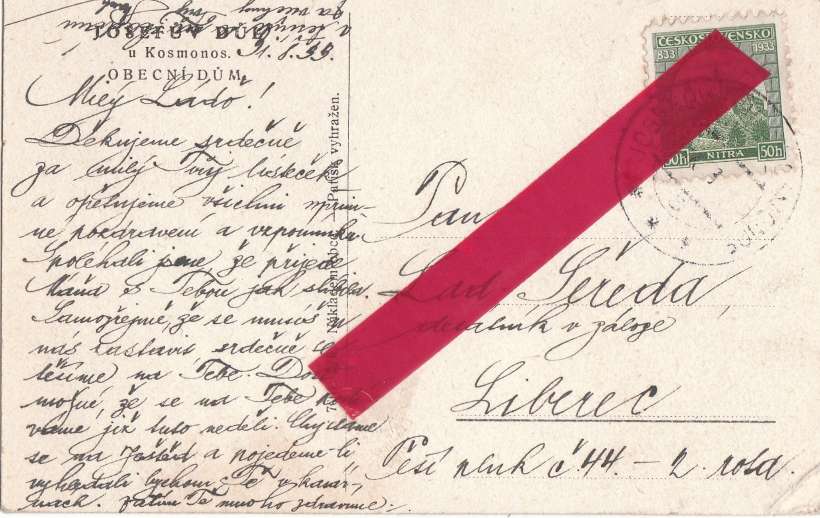 JOSEFŮV DŮL
u Kosmonos. 31.8.33.
OBECNÍ DŮM
Milý Láďo!
Děkujeme srdečně
za milý Tvůj lísteček
a opětujeme všichni upřím-
né pozdravení a vzpomínku.
Spoléhali jsme že přijede
Máňa s Tebou jak slíbila.
Samozřejmě, že se musíš u
nás zastavit srdečně se
těšíme na Tebe.
možné, že se na Tebe
již tuto neděli. Chystáme
se na Ještěd a pojedeme-li
vyhledali bychom Tě v kasár-
nách. Zatím Tě mnoho zdravíme
Nakladem obce. — Pařisk vyhražen.
ČESKOSLOVENSKO
833 1933
50h NITRA 50h
Pan
Lad. Sereda,
v záloze
Liberec
Pěší pluk č 44. – 2. rota.